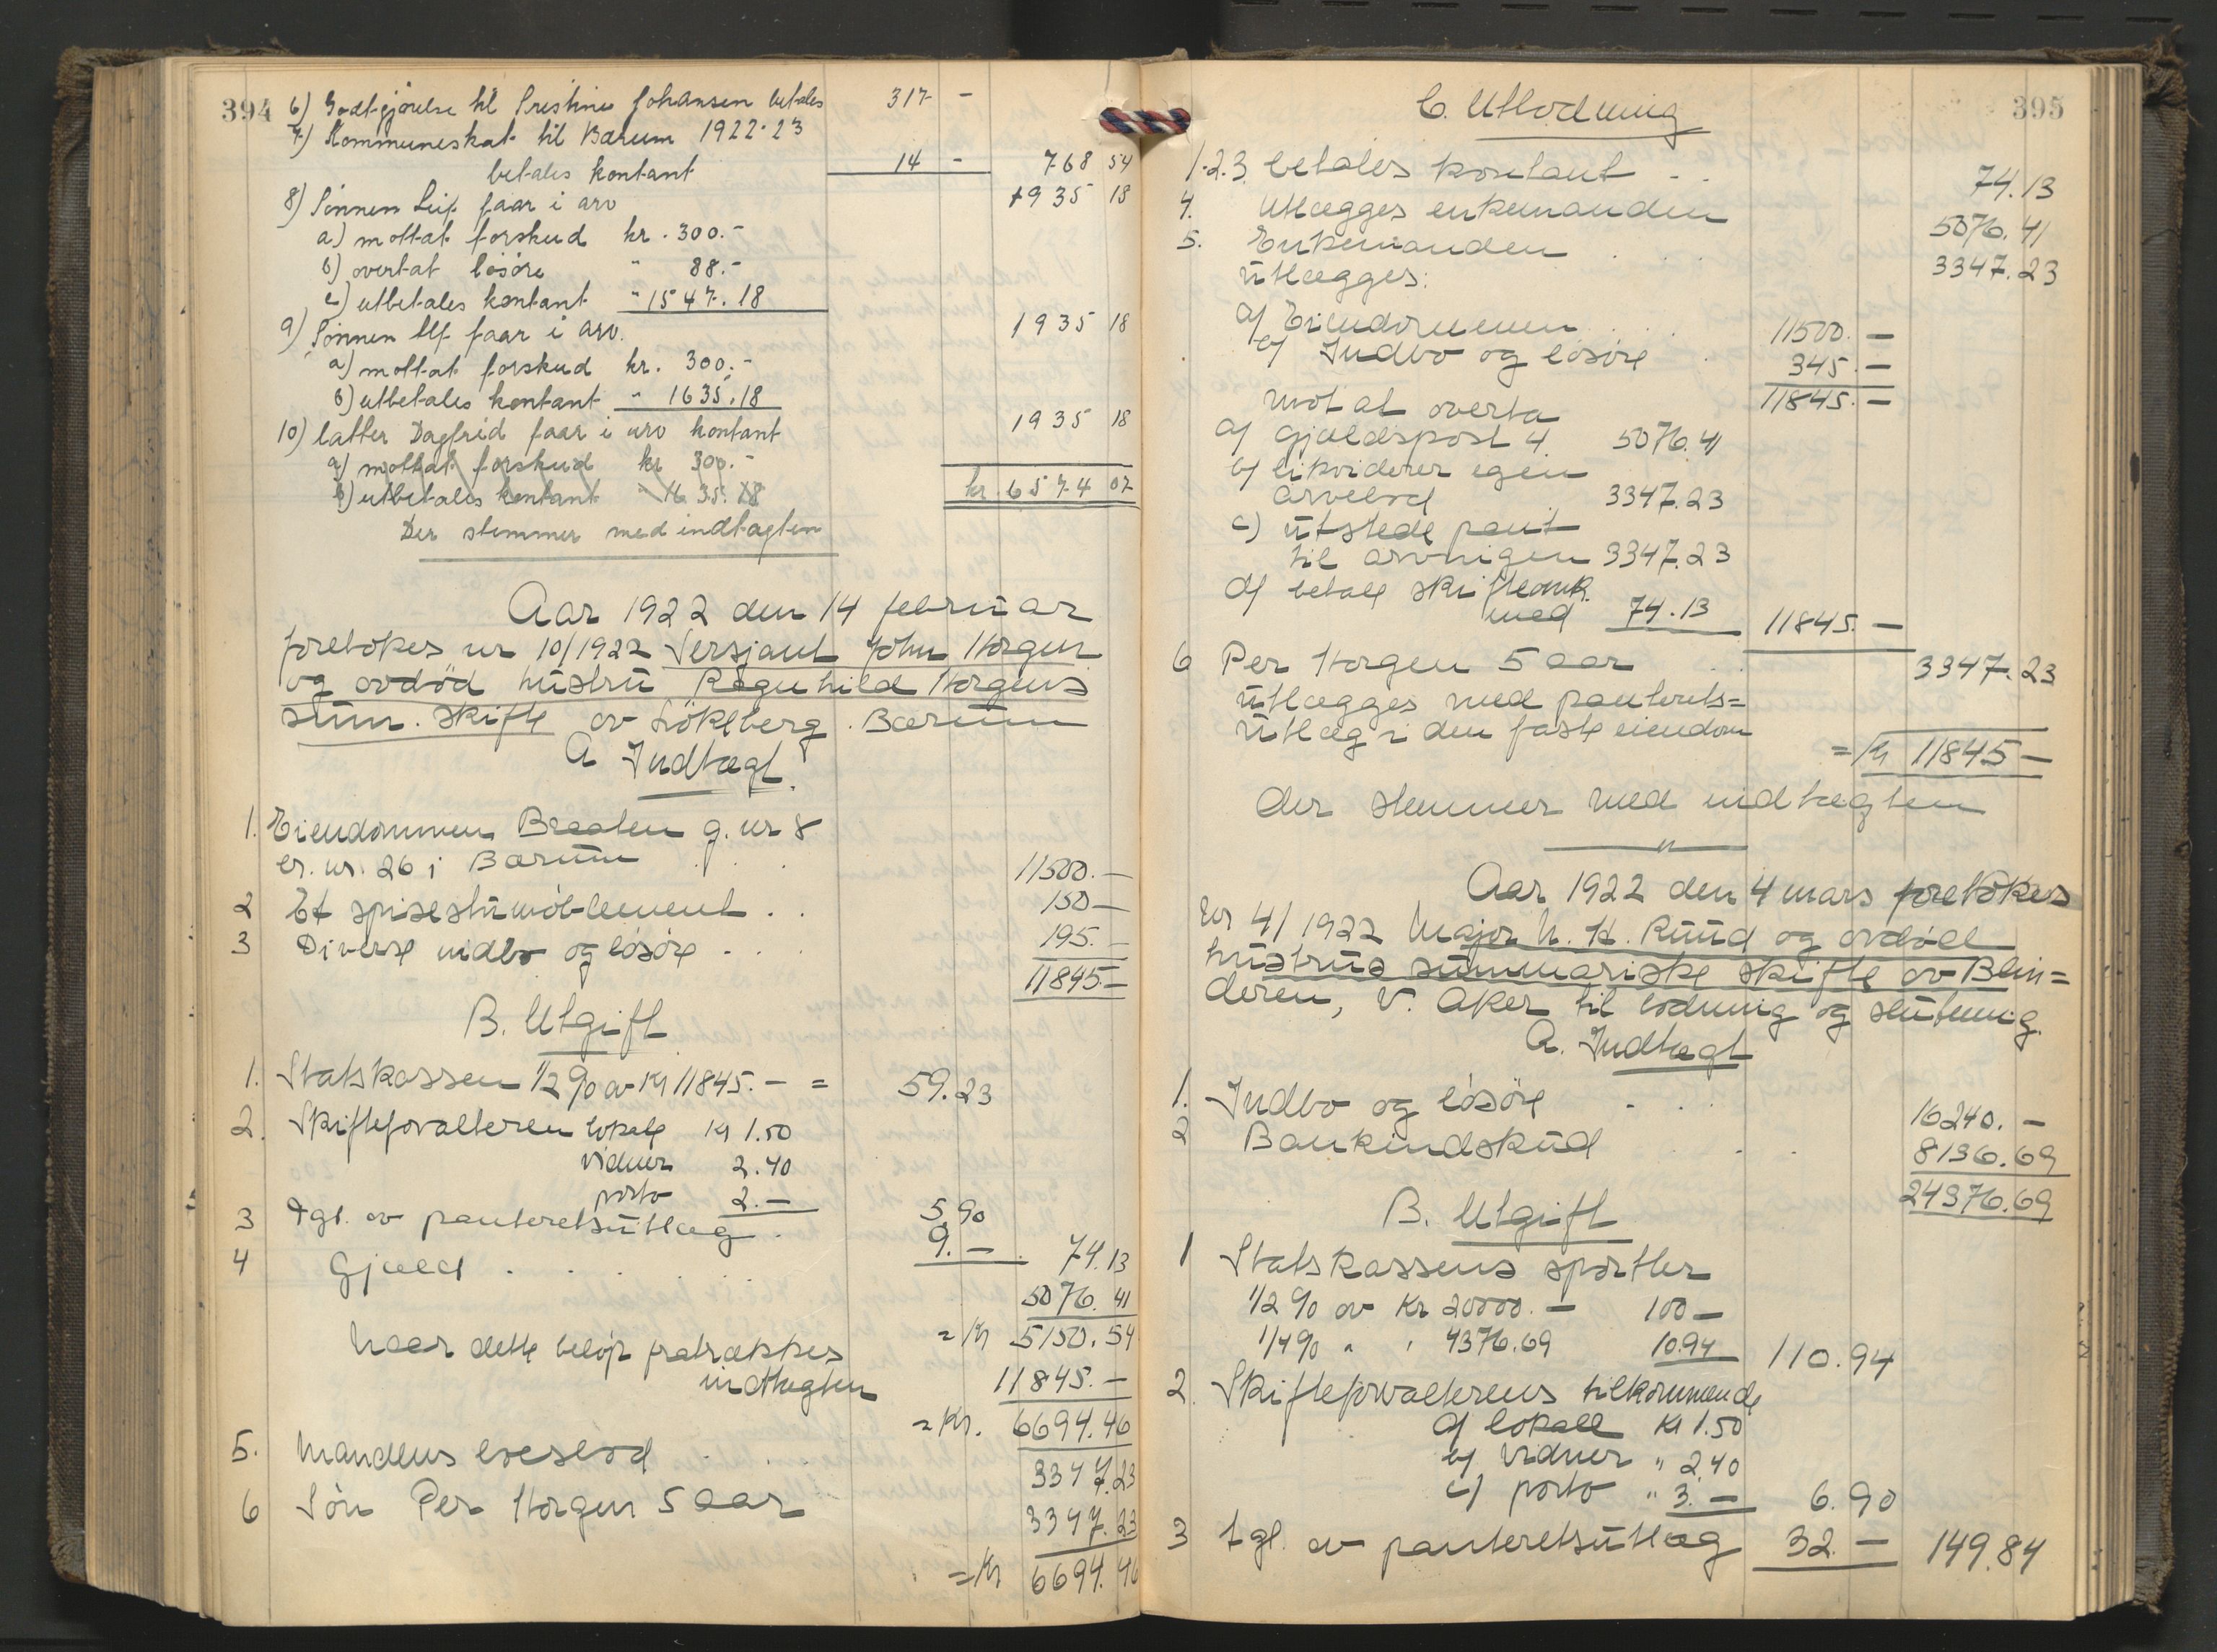 394
6) Godtgjørelse til Kristine Johansen betales 317 -
7) Kommuneskat til Bærum 1922-23
betales kontant 14 - 768 54
8) Sønnen Leif faar i arv 1935 18
a) mottat forskud kr. 300.-
b) overtat løsøre " 88.-
c) utbetales kontant " 1547.18
9) Sønnen Ulf faar i arv. 1935 18
a) mottat forskud kr. 300.-
b) utbetales kontant " 1635.18
10) Datter Dagfrid faar i arv kontant 1935 18
a) mottat forskud kr 300.-
b) utbetales kontant " 1635.18 kr. 6574 07
Der stemmer med indtægten
Aar 1922 den 14 februar
foretokes nr 10/1922 Sersjant John Horgen
og avdød hustru Ragnhild Horgens
sum. skifte av Løkeberg. Bærum
A Indtægt.
1. Eiendommen Braaten g. nr 8
br. nr. 26 i Bærum . . . 11500.-
2 Et spisestumøblement . . 150-
3 Diverse indbo og løsøre . . . 195.-
11845.-
B. Utgift
1. Statskassen 1/2 % av Kr 11845.- = 59.23
2. Skifteforvalteren lokale Kr 1.50
vidner 2.40
porto 2.- 5.90
3 Tgl. av panteretsutlæg . 9.- . 74.13
4 Gjæld . . . . . . 5076.41
= Kr 5150.54
Naar dette beløp fratrækkes
indtægten 11845.-
= Kr. 6694.46
5. Mandens boeslod . . 3347.23
6 Søn Per Horgen 5 aar 3347.23
= Kr 6694.46
395
C. Utlodning
1.2.3. betales kontant . . 74.13
4. Utlægges enkemanden 5076.41
5. Enkemanden . . . 3347.23
utlægges:
a) Eiendommen . . . 11500.-
b) Indbo og løsøre . 345.-
11845.-
mot at overta
a) Gjældspost 4 5076.41
b) likviderer egen
arvelod 3347.23
c) utstede pant
til arvingen 3347.23
d) betale skifteomk.
med 74.13 11845.-
6 Per Horgen 5 aar . . 3347.23
utlægges med panterets=
utlæg i den faste eiendom
= Kr 11845-
der stemmer med indtægten
"
Aar 1922 den 4 mars foretokes
nr 4/1922 Major N. K. Ruud og avdøde
hustrus summariske skifte av Blin=
deren, V. Aker til lodning og slutning.
A. Indtægt
1. Indbo og løsøre . . . 16240.-
2 Bankindskud . . . 8136.69
24376.69
B. Utgift
1 Statskassens sportler
1/2 % av Kr 20000.- 100-
1/4 % " " 4376.69 10.94 110.94
2. Skifteforvalterens tilkommende
a) lokale Kr 1.50
b) vidner " 2.40
c) porto " 3.- 6.90
3 Tgl. av panteretsutlæg 32.- 149.84